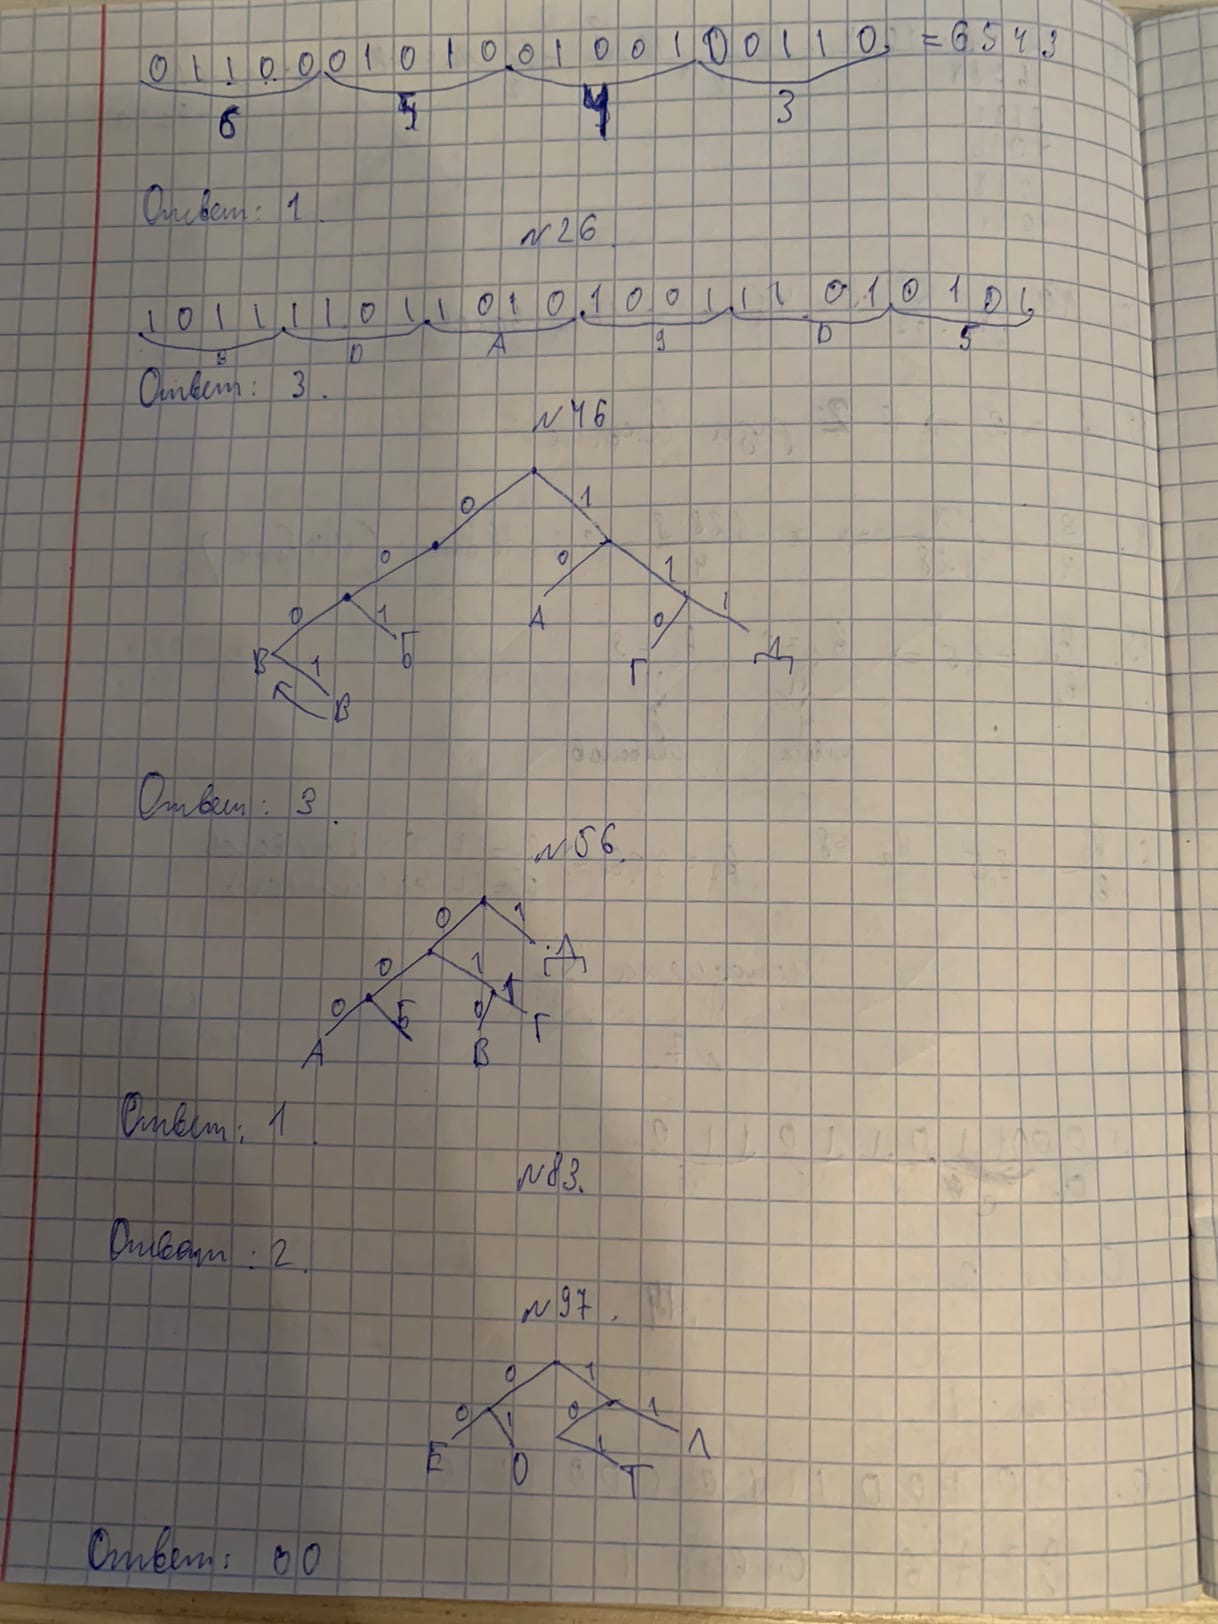 0 1 1 0 0 0 1 0 1 0 0 1 0 0 1 0 0 1 1 0 = 6543
6 5 4 3
Ответ: 1.
№26.
1 0 1 1 1 1 0 1 1 0 1 0 1 0 0 1 1 1 0 1 0 1 0 1
B D A 9 D 5
Ответ: 3.
№46
0 1
0 0 1
0 1 А 0 1
В 1 Б Г Д
В
Ответ: 3.
№56.
0 1
0 1 Д
0 Б 0 1 Г
А В
Ответ: 1.
№83.
Ответ: 2.
№97.
0 1
0 1 0 1
Е О 1 Т Л
Ответ: 00